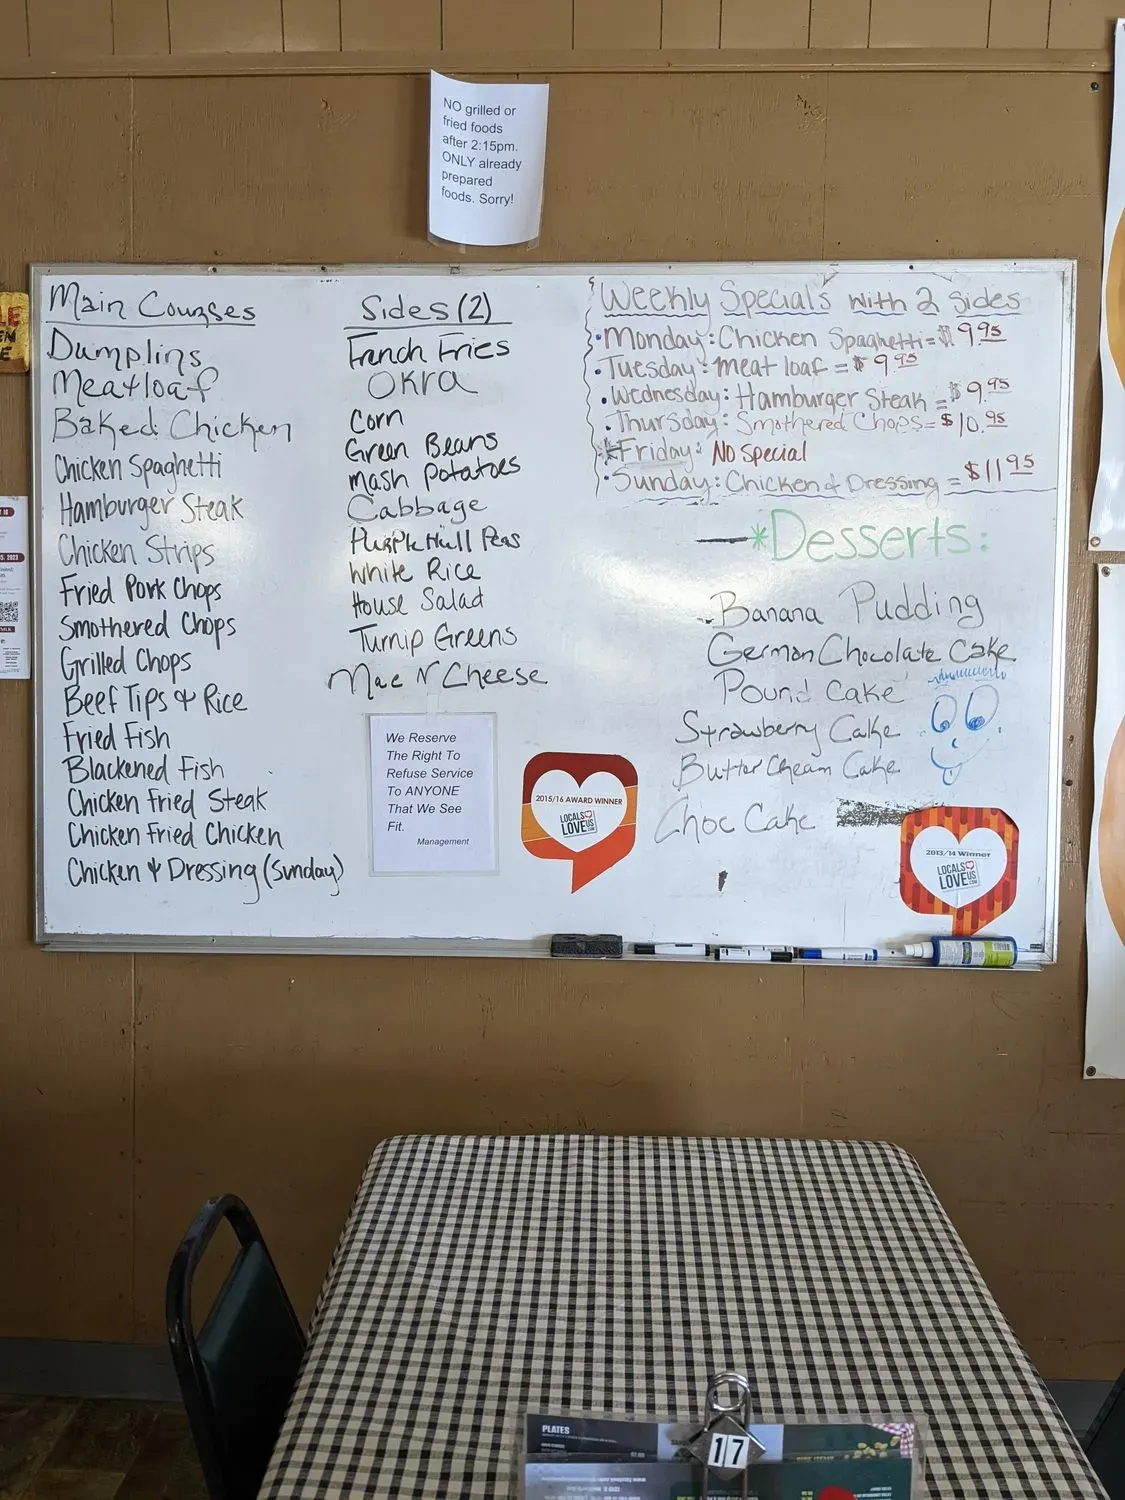 NO grilled or
fried foods
after 2:15pm.
ONLY already
prepared
foods. Sorry!
Main Courses
Dumplins
Meatloaf
Baked Chicken
Chicken Spaghetti
Hamburger Steak
Chicken Strips
Fried Pork Chops
Smothered Chops
Grilled Chops
Beef Tips & Rice
Fried Fish
Blackened Fish
Chicken Fried Steak
Chicken Fried Chicken
Chicken & Dressing (Sunday)
Sides (2)
French Fries
OKRA
Corn
Green Beans
Mash Potatoes
Cabbage
Purple Hull Peas
White Rice
House Salad
Turnip Greens
Mac N Cheese
We Reserve
The Right To
Refuse Service
To ANYONE
That We See
Fit.
Management
2015/16 AWARD WINNER
LOCALS
LOVE US
.COM
Weekly Specials with 2 sides
• Monday: Chicken Spaghetti = $9.95
• Tuesday: meat loaf = $9.95
• Wednesday: Hamburger Steak = $9.95
• Thursday: Smothered Chops = $10.95
*Friday: No Special
• Sunday: Chicken & Dressing = $11.95
*Desserts:
Banana Pudding
German Chocolate Cake
Pound Cake
Strawberry Cake
Butter Cream Cake
Choc Cake
2013/14 Winner
LOCALS
LOVE US
.COM
PLATES
17